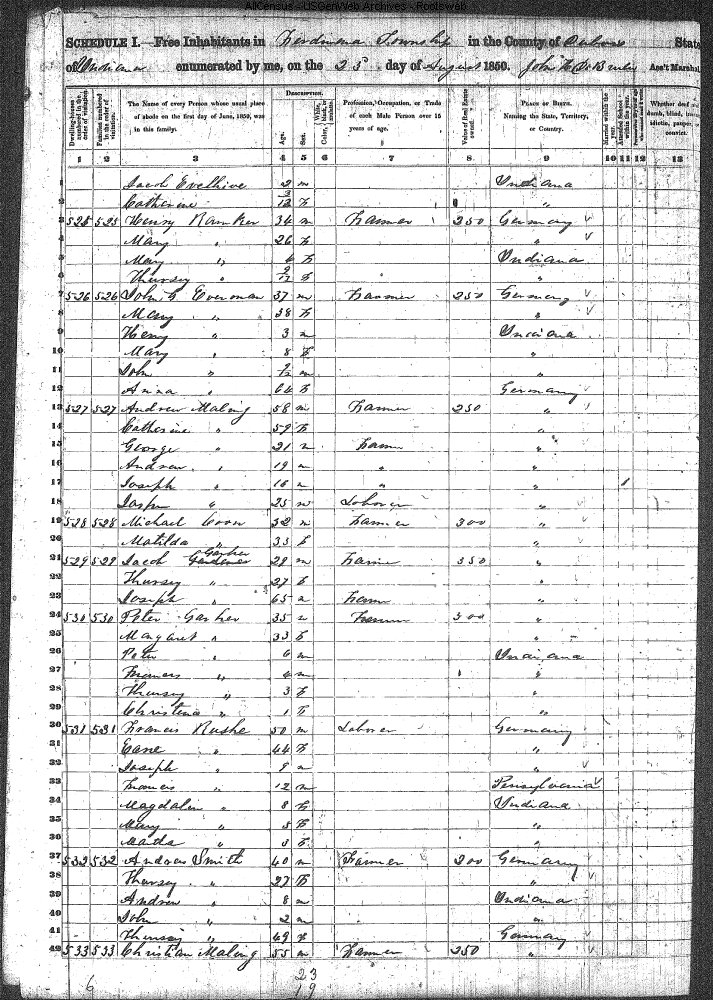 AllCensus - USGenWeb Archives - Rootsweb
SCHEDULE I.—Free Inhabitants in Township in the County of Dubois State
of Indiana enumerated by me, on the 23 day of August 1850. John Ass't Marshal
DESCRIPTION.
Dwelling-houses numbered in the order of visitation. Families numbered in the order of visitation. The Name of every Person whose usual place of abode on the first day of June, 1850, was in this family. Age. Sex. White, black, or mulatto. Color, Profession, Occupation, or Trade of each Male Person over 15 years of age. Value of Real Estate owned. PLACE OF BIRTH. Naming the State, Territory, or Country. Married within the year. Attended School within the year. Whether deaf and dumb, blind, insane, idiotic, pauper or convict.
1 2 3 4 5 6 7 8 9 10 11 12 13
1 Jacob Evelhive 2 m Indiana
2 Catherine 3/12 f "
3 525 525 Henry Ramker 34 m Farmer 250 Germany
4 Mary " 26 f "
5 Mary " f Indiana
6 Thursey " 2/12 f "
7 526 526 John G Everman 37 m Farmer 250 Germany
8 Mary " 38 f "
9 Henry " 3 m Indiana
10 Mary " 8 f "
11 John " m "
12 Anna " 64 f Germany
13 527 527 Andrew Maling 58 m Farmer 250 "
14 Catherine " 59 f "
15 George " 21 m Farmer "
16 Andrew " 19 m " "
17 Joseph " 16 m " " 1
18 " 25 m Laborer "
19 528 528 Michael Coon 32 m Farmer 300 "
20 Matilda " 33 f "
21 529 529 Jacob Garher 29 m Farmer 350 "
22 Thursey " 27 f "
23 Joseph " 65 m Farmer "
24 530 530 Peter Garher 35 m Farmer 300 "
25 Margaret " 33 f "
26 Peter " 6 m Indiana
27 Frances " 4 m "
28 Thursey " 3 f "
29 Christena " 1 f "
30 531 531 Francis Rushe 50 m Laborer Germany
31 Cane " 44 f "
32 Joseph " 9 m "
33 Frances " 12 m Pensylvania
34 Magdalin " 8 f Indiana
35 Mary " 5 f "
36 Matta " 3 f "
37 532 532 Andrew Smith 40 m Farmer 200 Germany
38 Thursey " 27 f "
39 Andrew " 8 m Indiana
40 John " 2 m "
41 Thursey " 49 f Germany
42 533 533 Christian Maling 55 m Farmer 250 "
6 23
19